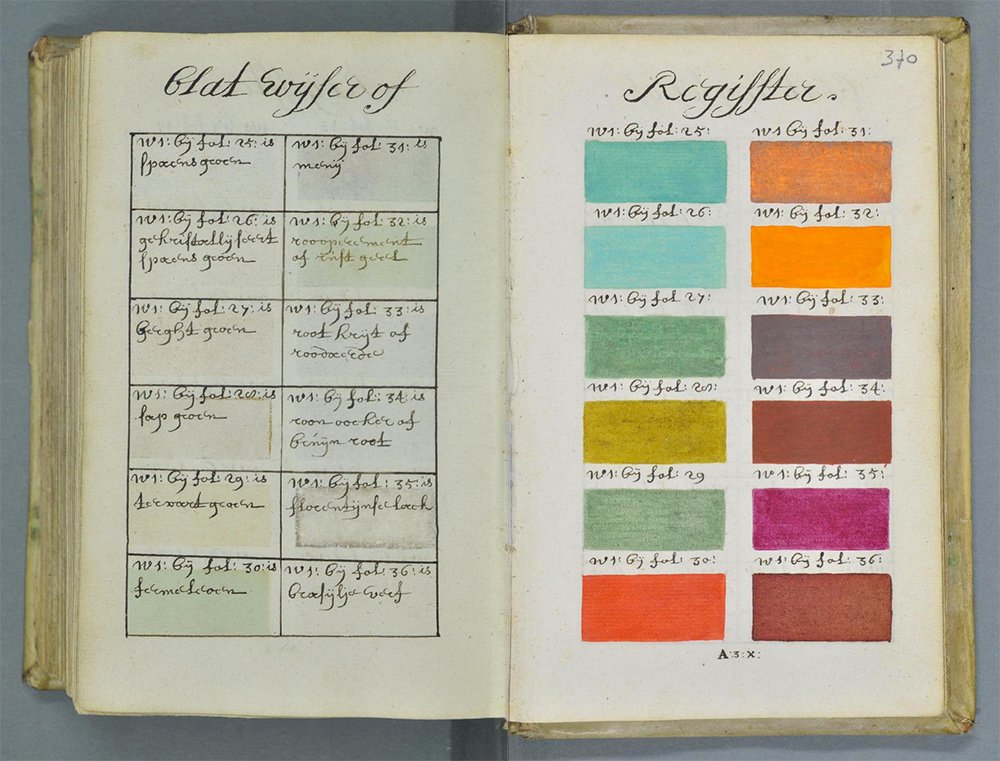 Blat Wijser of
w1: bij fol: 25: is
spaens groen
w1: bij fol: 31: is
menij
w1: bij fol: 26: is
gekristallijseert
spaens groen
w1: bij fol: 32: is
roo operement
of rust geel
w1: bij fol: 27: is
berght groen
w1: bij fol: 33: is
root krijt of
roodaerde
w1: bij fol: 28: is
sap groen
w1: bij fol: 34: is
roon oocker of
bruijn root
w1: bij fol: 29: is
groen
w1: bij fol: 35: is
florentijnse lack
w1: bij fol: 30: is
fermeloen
w1: bij fol: 36: is
brasijlje verf
370
Regisster.
w1: bij fol: 25:
w1: bij fol: 31:
w1: bij fol: 26:
w1: bij fol: 32:
w1: bij fol: 27:
w1: bij fol: 33:
w1: bij fol: 28:
w1: bij fol: 34:
w1: bij fol: 29
w1: bij fol: 35:
w1: bij fol: 30:
w1: bij fol: 36:
A:3:X: